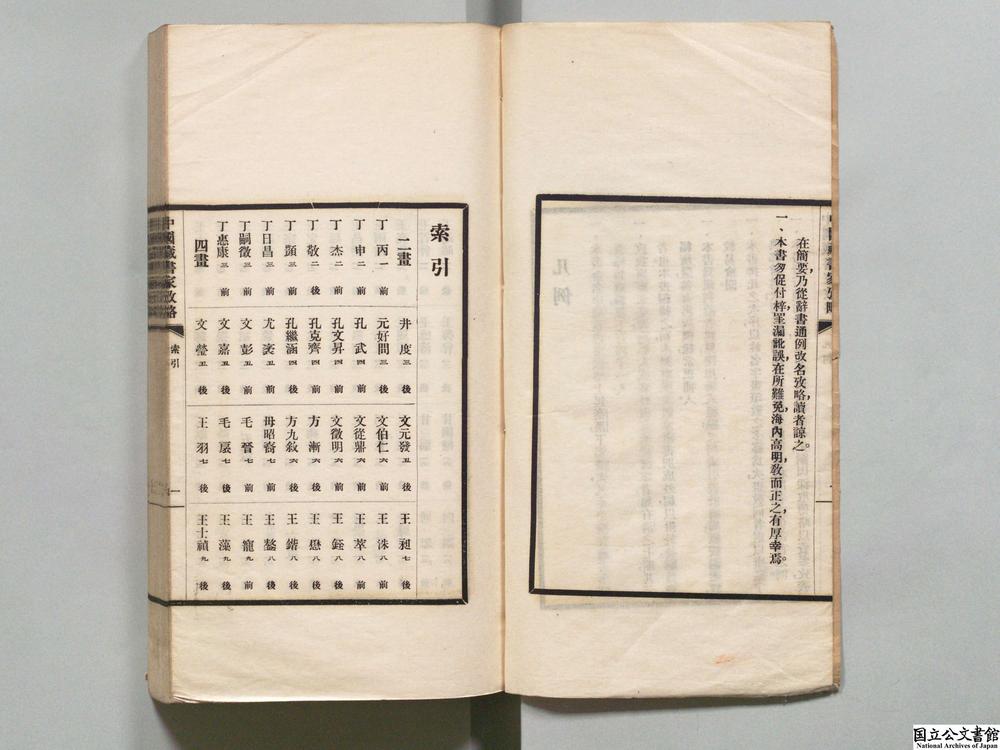 在簡要,乃從辭書通例,改名攷略,讀者諒之。
一、本書匆促付梓,罣漏訛誤,在所難免,海內高明,敎而正之,有厚幸焉。
索引
二畫
丁丙 一 前
丁申 二 前
丁杰 二 前
丁敬 二 後
丁顥 三 前
丁日昌 三 前
丁嗣徵 三 前
丁惠康 三 前
四畫
井度 三 後
元好問 三 後
孔武 四 前
孔文昇 四 前
孔克齊 四 後
孔繼涵 四 後
尤袤 五 前
文彭 五 前
文嘉 五 後
文瑩 五 後
文元發 五 後
文伯仁 六 前
文從鼎 六 前
文徵明 六 前
方漸 六 後
方九敘 六 後
毋昭裔 七 前
毛晉 七 前
毛扆 七 後
王羽 七 後
王昶 七 後
王洙 八 前
王萃 八 前
王銍 八 前
王懋 八 後
王鍇 八 後
王鏊 八 後
王寵 九 前
王藻 九 後
王士禎 九 後
中國藏書家攷略
索引
一
国立公文書館
National Archives of Japan